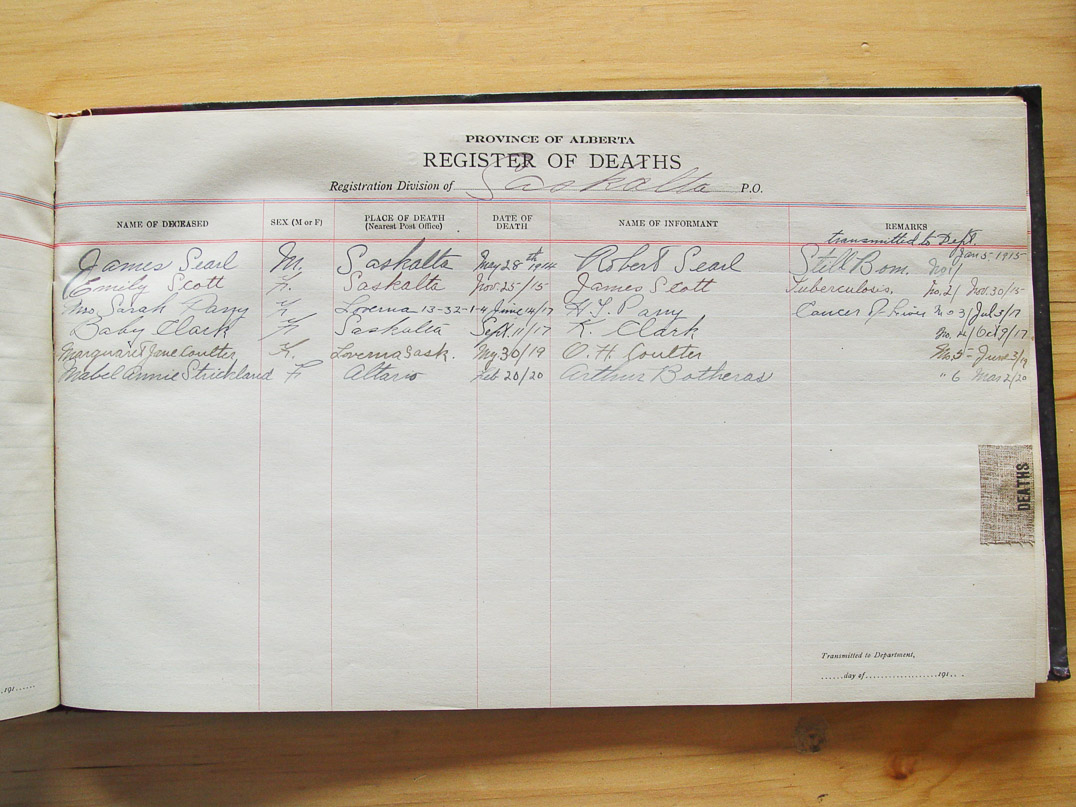 PROVINCE OF ALBERTA
REGISTER OF DEATHS
Registration Division of Saskalta P.O.
NAME OF DECEASED SEX (M or F) PLACE OF DEATH (Nearest Post Office) DATE OF DEATH NAME OF INFORMANT REMARKS
transmitted to Dept.
James Searl M. Saskalta May 28th 1914 Robert Searl Still Born. No. 1/ Jan 5-1915
Emily Scott F. Saskalta Nov. 25/15 James Scott Tuberculosis. No. 2/ Nov. 30/15
Mrs. Sarah Pany F Loverna 13-32-1-4 June 14/17 H. T. Pany Cancer of Liver No 3/ Jul 3/17
Baby Clark F Saskalta Sept. 11/17 K. Clark No. 4/ Oct 9/17
Marguaret Jane Coulter F. Loverna Sask. My 30/19 O. H. Coulter No. 5 - June 3/19
Mabel Annie Strickland F Altario Feb 20/20 Arthur Botheras " 6 Mar 2/20
DEATHS
Transmitted to Department,
......day of....................191....
.191......